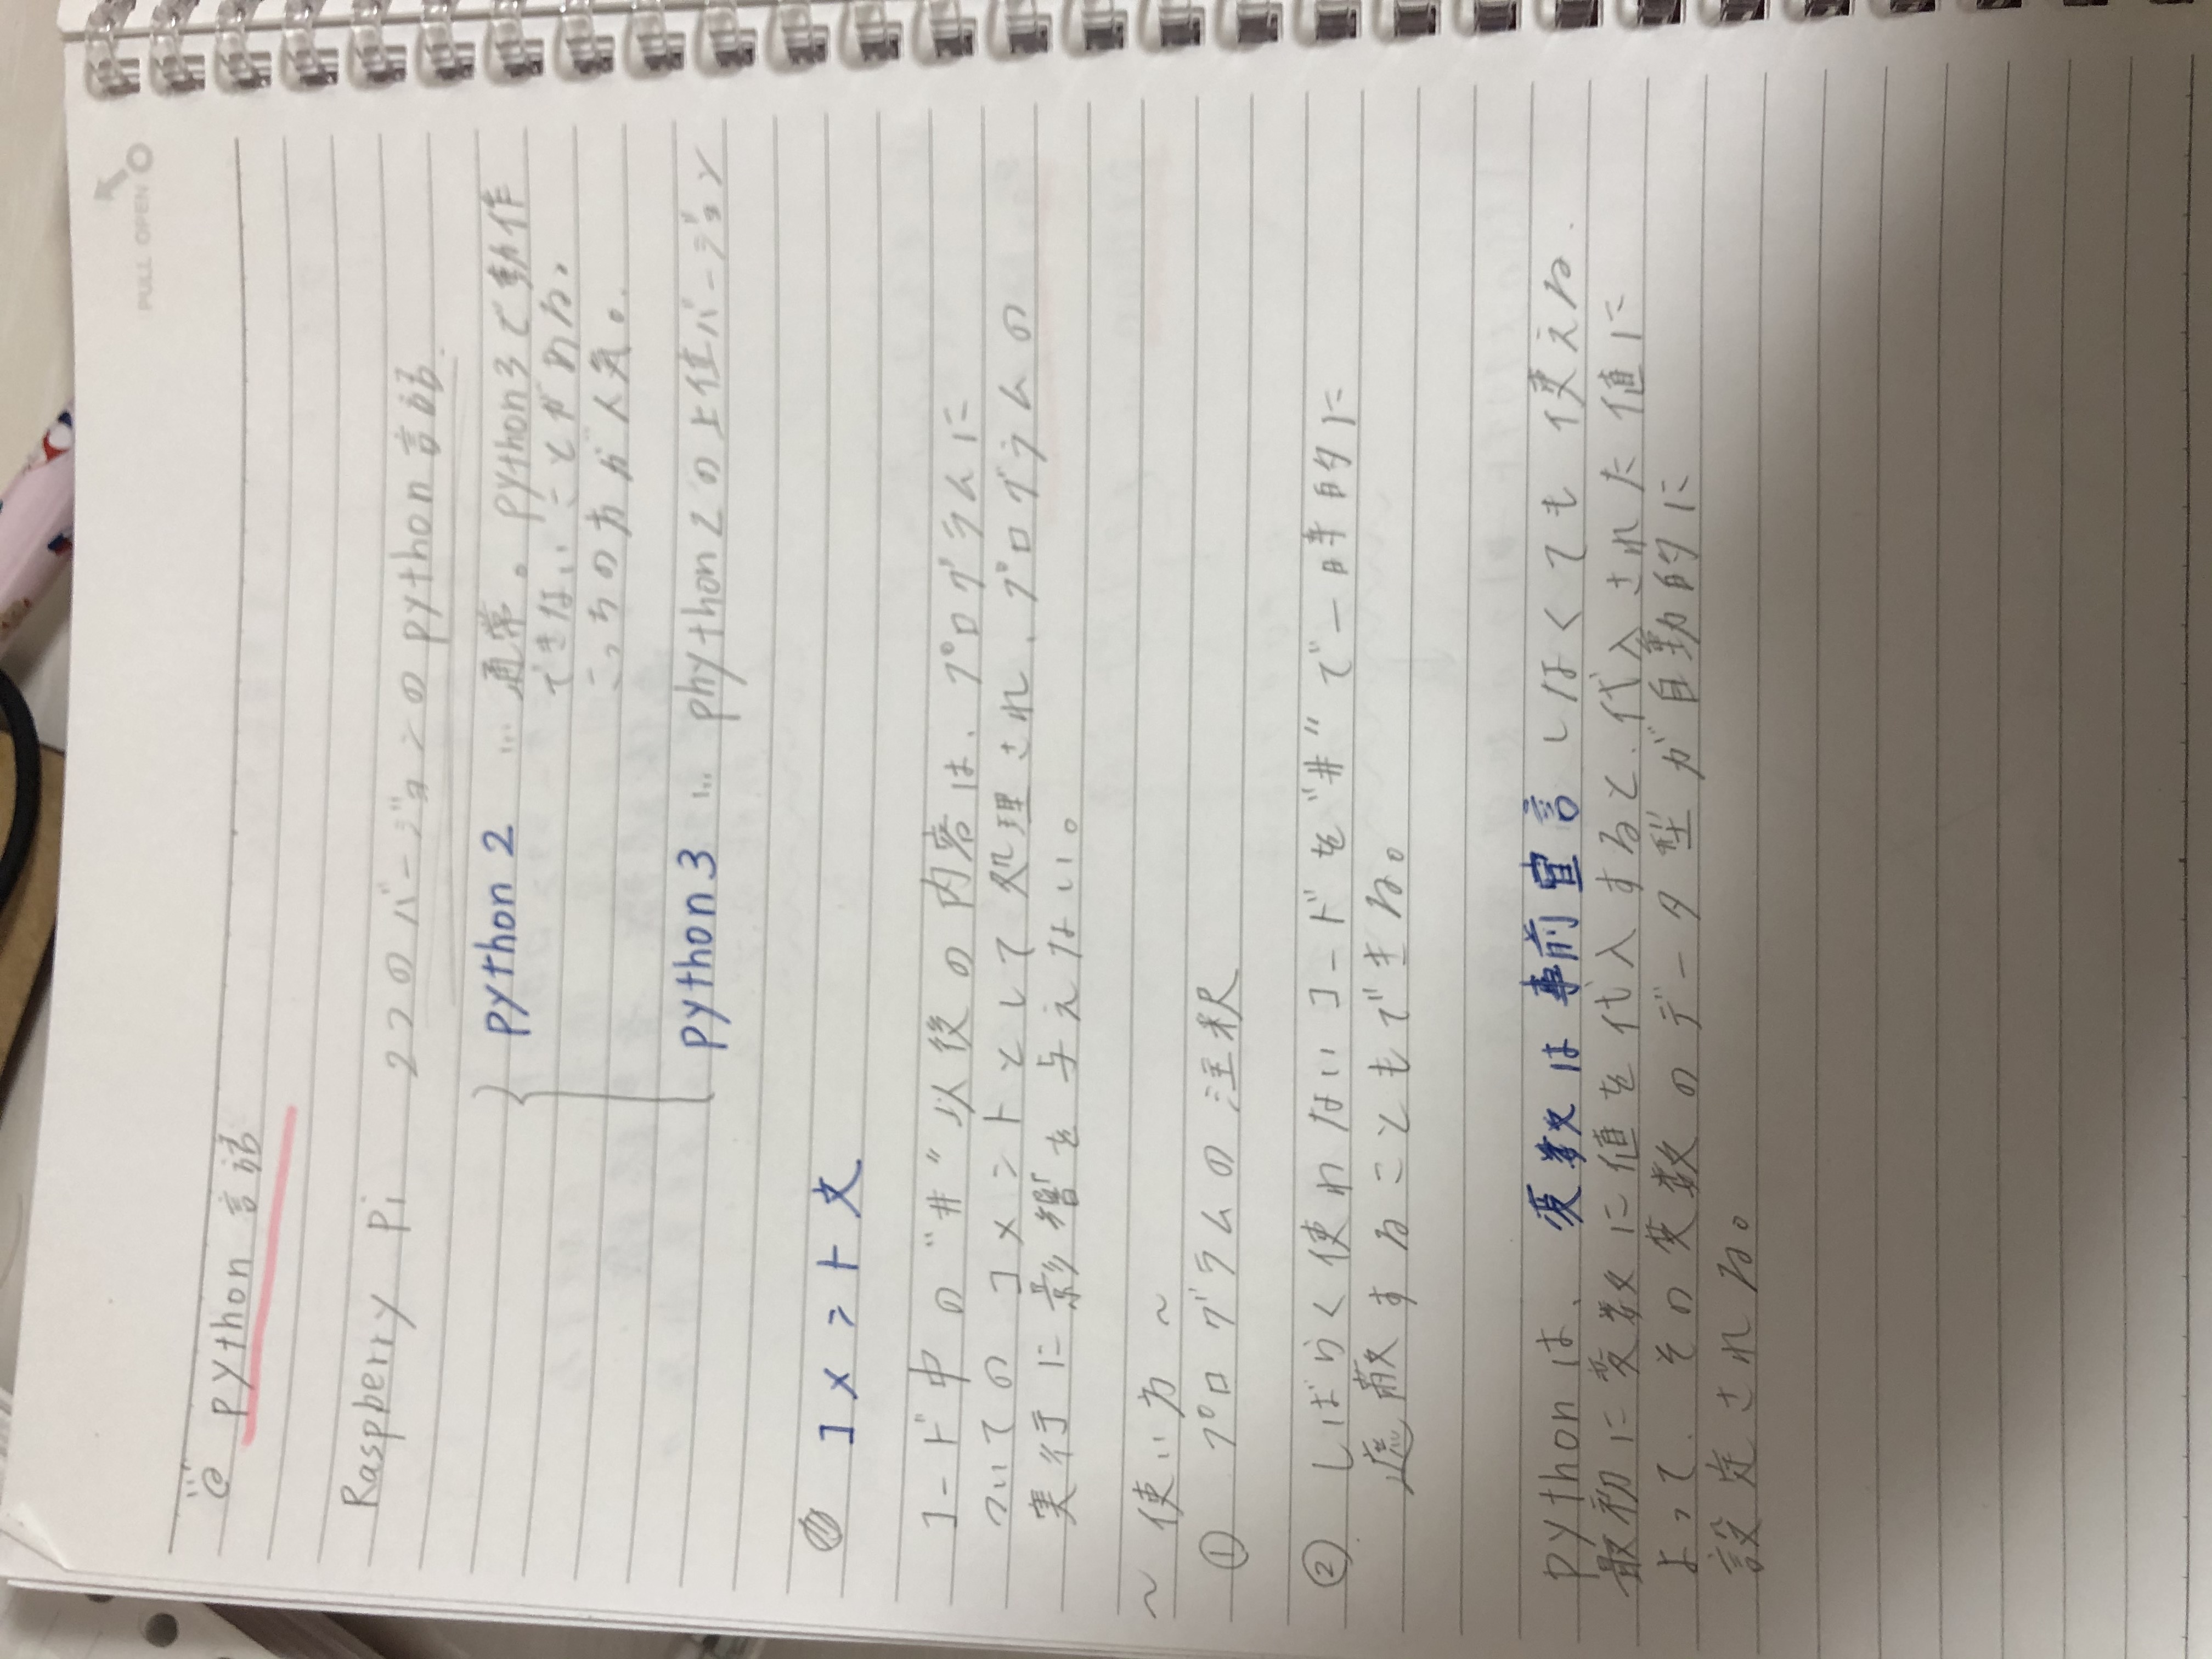 PULL OPEN
python 言語
Raspberry Pi 2つのバージョンのpython言語.
python 2 … 通常。python3で動作
できないことがある。
こっちの方が人気。
python 3 … phython2の上位バージョン
コメント文
コード中の"#"以後の内容は、プログラムに
ついてのコメントとして処理され、プログラムの
実行に影響を与えない。
~ 使い方 ~
① プログラムの注釈
② しばらく使わないコードを"#"で一時的に
遮蔽することもできる。
pythonは、変数は事前宣言しなくても使える.
最初に変数に値を代入すると、代入された値に
よって、その変数のデータ型が自動的に
設定される。